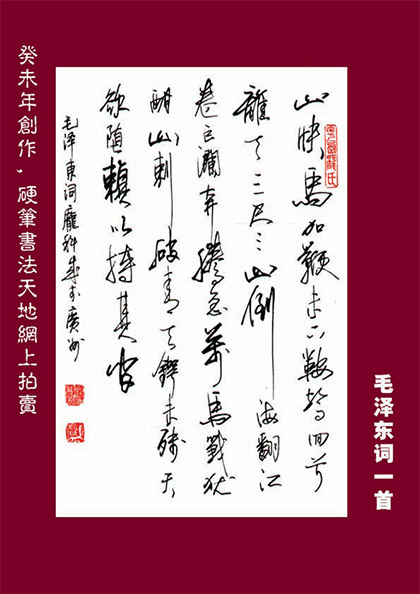 山快馬加鞭未下鞍驚回首
離天三尺三山倒海翻江
卷巨瀾奔騰急萬馬戰犹
酣山刺破青天鍔未殘天
欲墮賴以拄其间
毛泽東词龐科 于廣州
毛泽东词一首
癸未年創作，硬筆書法天地網上拍賣